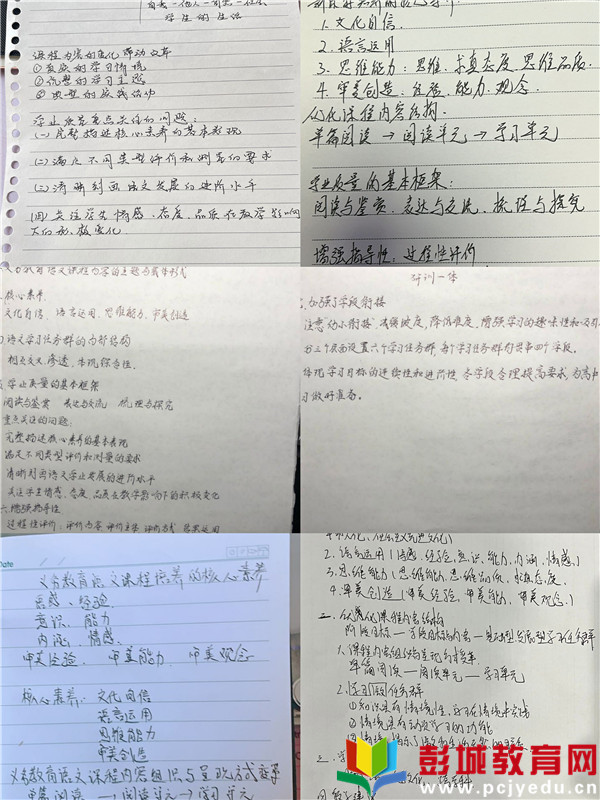 学生的生活
课程内容的变化带动改革
①真实的学习情境
③典型的实践活动
学业质量重点关注的问题：
(一)完整描述核心素养的基本表现
(二)满足不同类型评价和测量的要求
(三)清晰刻画语文发展的进阶水平
(四)关注学生情感、态度、品质在教学影响
下的积极变化
1.文化自信.
2.语言运用
3.思维能力：思维、求真态度 思维品质.
4.审美创造：能力、观念.
优化课程内容结构.
单篇阅读→阅读单元→学习单元
学业质量的基本框架：
阅读与鉴赏、表达与交流、梳理与探究
增强指导性：过程性评价
核心素养.
文化自信、语言运用、思维能力、审美创造
语文学习任务群的内部结构
相互交叉、渗透、体现综合性.
学业质量的基本框架
阅读与鉴赏 表达与交流 梳理与探究
重点关注的问题：
完整描述核心素养的基本表现
满足不同类型评价和测量的要求
清晰刻画语文学业发展的进阶水平
关注学生情感、态度、品质在教学影响下的积极变化
六.增强指导性
研训一体
加强了学段衔接
注意“幼小衔接”减缓坡度，降低难度，增强学习的趣味性和吸引
分三个层面设置六个学习任务群，每个学习任务群都贯串四个学段.
体现学习目标的连续性和进阶性.各学段合理提高要求，为高中
习做好准备.
Date
义务教育语文课程培养的核心素养
意识、能力
内涵、情感.
审美经验、审美能力、审美观念
核心素养：文化自信
语言运用
思维能力
审美创造
义务教育语文课程内容组织与呈现方式变革
单篇阅读——阅读单元→学习单元
2.语言运用(语感、经验、意识、能力、内涵、情感)
3.思维能力(思维能力、思维品质、求真态度)
4.审美创造(审美经验、审美能力、审美观念)
二、优化课程内容结构
1.课程内容组织与呈现的方式变革
单篇阅读—阅读单元—学习单元
2.学习任务群
彭城教育网
www.pcjyedu.cn